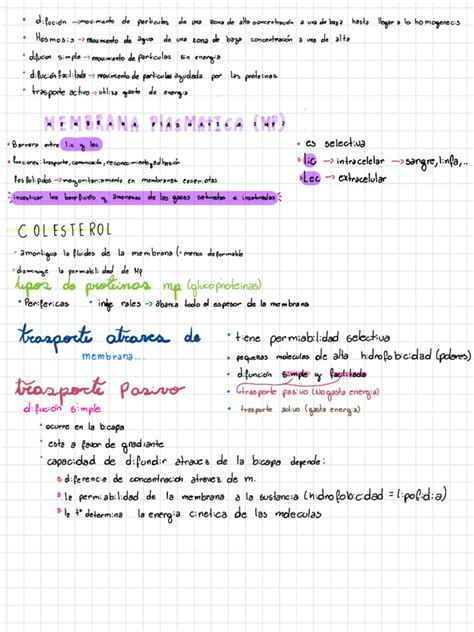 • difución → movimiento de particulas de una zona de alta concentración a una de baja hasta llegar a lo homogenecis
• Hosmosis → movimiento de agua de una zona de baja concentración a una de alta
• difucion simple → movimiento de particulas sin energia
• difución facilitada → movimiento de particulas ayudada por las proteinas
• trasporte activo → utiliza gasto de energia
MEMBRANA PlasMATICA (MP)
• Barrera entre lic y lec
• es selectiva
• funciones: trasporte, comunicación, reconocimiento, adhesión
lic → intracelelar → sangre, linfa,...
fosfolipidos → mayoritariamente en membranas
Lec → extracelular
investigar los beneficios y amenazas de las grasas saturadas e insaturadas
COLESTEROL
• amortigua la fluides de la membrana (• menos deformable
• disminulle la permiabilidad de Mp
tipos de proteinas mp (glucoproteinas)
• Perifericas • integrales → abarca todo el espesor de la membrana
trasporte atraves de
membrana...
• tiene permiabilidad selectiva
• pequeñas moleculas de alta hidrofobicidad (polores)
• difunción simple y facilitada
trasporte Pasivo
trasporte pasivo (No gasta energia)
difución simple
• trasporte activo (gasta energia)
• ocurre en la bicapa
• esta a favor de gradiante
• capacidad de difundir atravez de la bicapa depende:
diferencia de concentración atravez de m.
la permiabilidad de la membrana a la sustancia (hidrofobicidad = lipofidia)
la t° determina la energia cinetica de las moleculas